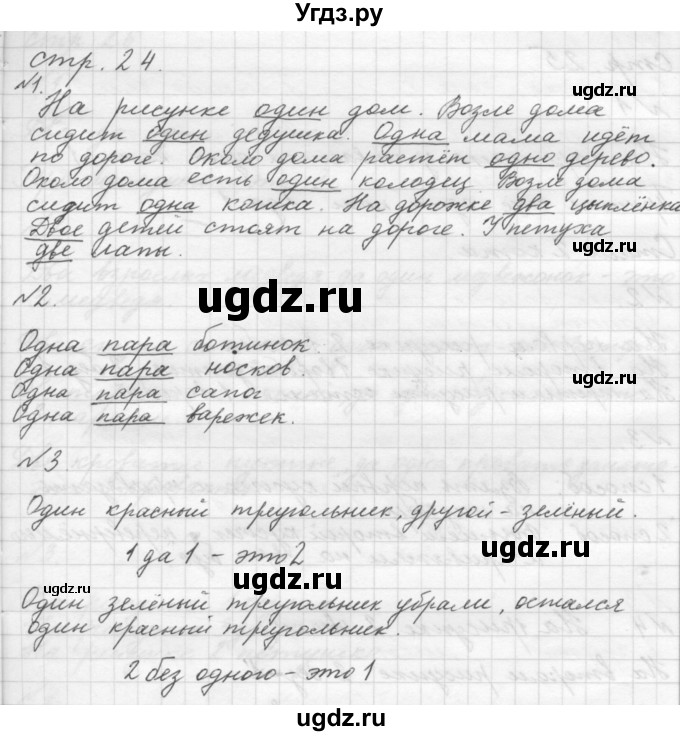 Угдз.ру
стр. 24.
ugdz.ru
№1.
На рисунке один дом. Возле дома
ugdz.ru
сидит один дедушка. Одна мама идёт
по дороге. Около дома растёт одно дерево.
Около дома есть один колодец. Возле дома
ugdz.ru
сидит одна кошка. На дорожке два цыплёнка
Двое детей стоят на дороге. У петуха
две лапы.
ugdz.ru
№2.
ugdz.ru
Одна пара ботинок.
Одна пара носков.
ugdz.ru
Одна пара сапог
Одна пара варежек.
№3
ugdz.ru
Один красный треугольник, другой - зелёный.
1 да 1 - это 2
ugdz.ru
ugdz.ru
ugdz.ru
Один зелёный треугольник убрали, остался
один красный треугольник.
2 без одного - это 1
ugdz.ru
ugdz.ru